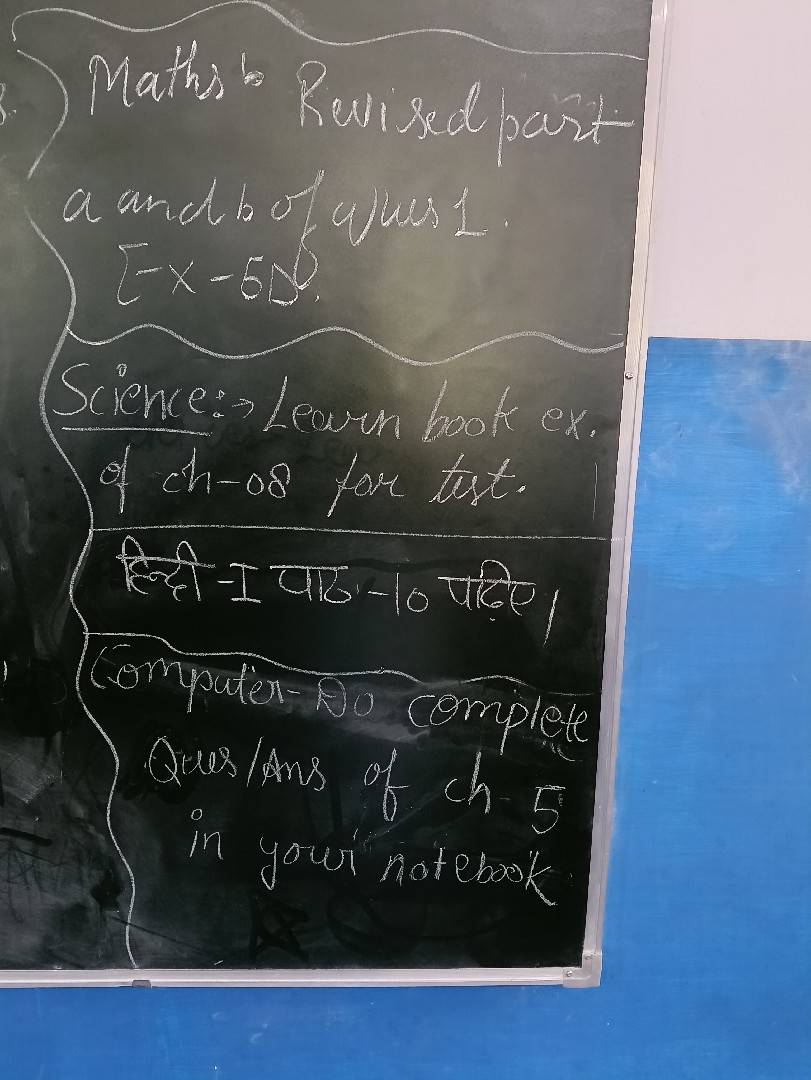 Maths Revised part
a and b of Ques 1.
Ex-5D.
Science:→ Learn book ex.
of ch-08 for test.
हिन्दी-I पाठ-10 पढ़िए।
Computer-Do complete
Ques/Ans of ch-5
in your notebook